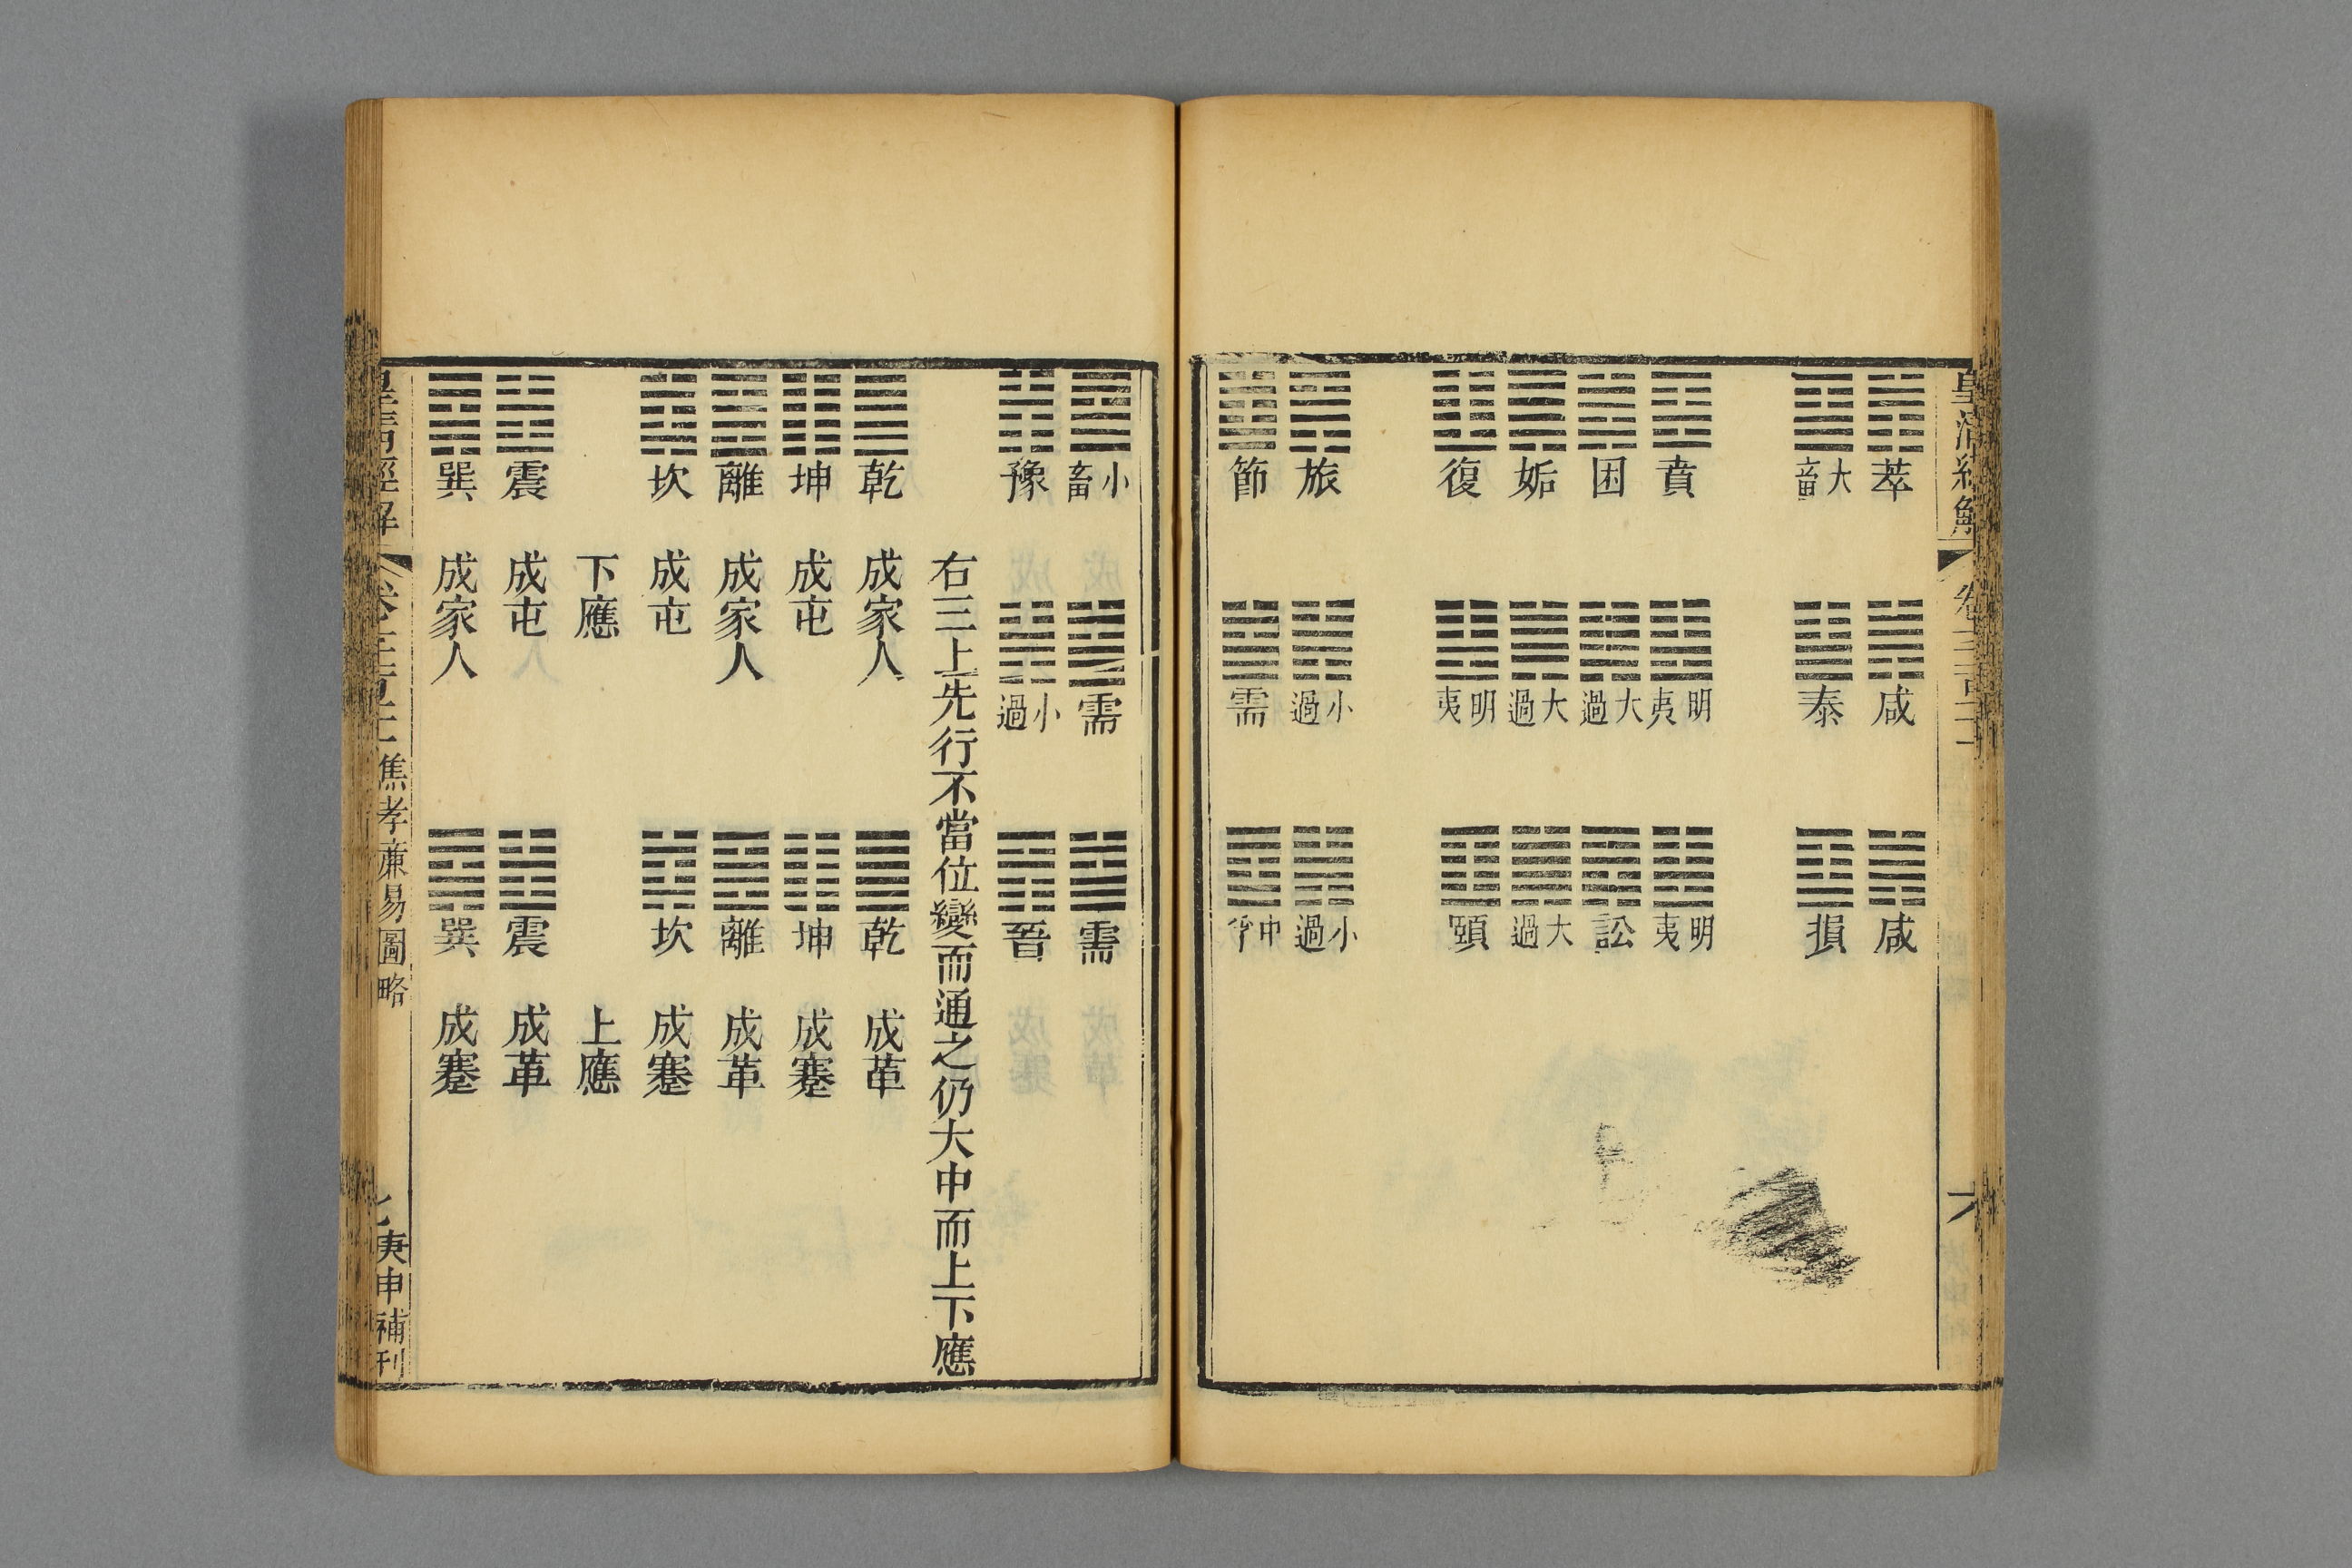 皇清經解
卷一千一百二十
六
萃 咸 咸
大畜 泰 損
賁 明夷 明夷
困 大過 訟
姤 大過 大過
復 明夷 頤
旅 小過 小過
節 需 中孚
小畜 需 需
豫 小過 晉
右三上先行不當位變而通之仍大中而上下應
乾 成家人 乾 成革
坤 成屯 坤 成蹇
離 成家人 離 成革
坎 成屯 坎 成蹇
下應 上應
震 成屯 震 成革
巽 成家人 巽 成蹇
皇清經解
焦孝廉易圖略
七
庚申補刊